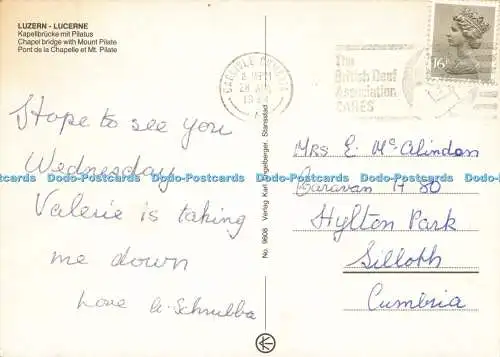 LUZERN - LUCERNE
Kapellbrücke mit Pilatus
Chapel bridge with Mount Pilate
Pont de la Chapelle et Mt. Pilate
CARLISLE CUMBRIA
28
19
The
British Deaf
Association
CARES
16
Hope to see you
Wednesday
Valerie is taking
me down
Love
No. 9606 Verlag Karl Engelberger, Stansstad
Mrs E. McAlindon
Caravan H 80
Hylton Park
Silloth
Cumbria
Dodo-Postcards Dodo-Postcards Dodo-Postcards Dodo-Postcards Dodo-Postcards Dodo-Postcards